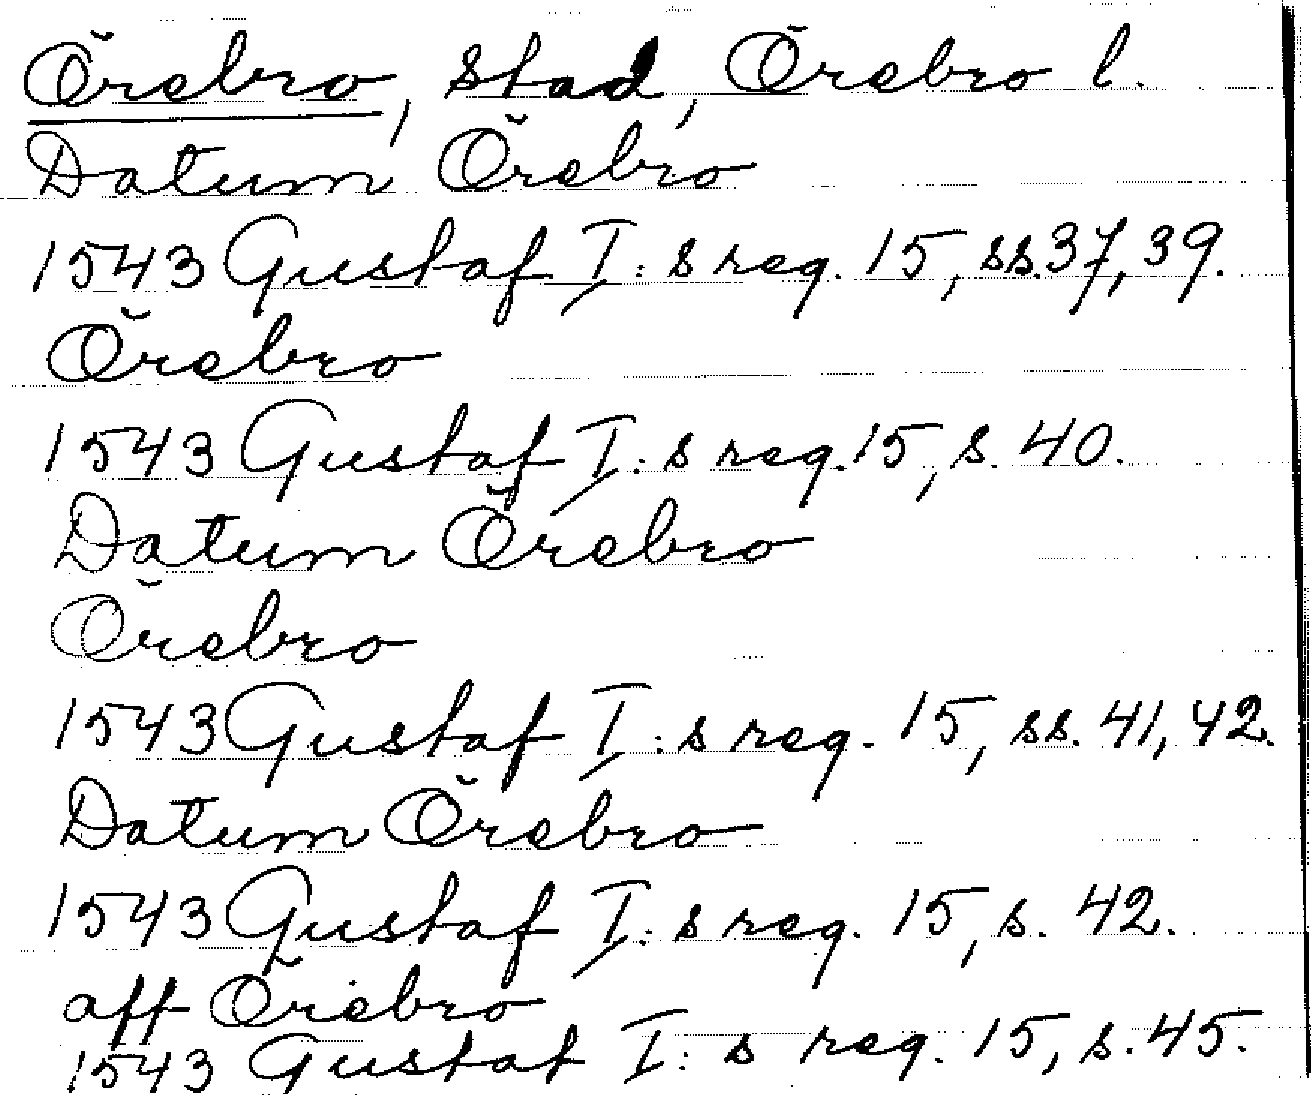 Örebro, stad, Örebro l.
Datum Örebro
1543 Gustaf I:s reg. 15, ss. 37, 39.
Örebro
1543 Gustaf I:s reg. 15, s. 40.
Datum Örebro
Örebro
1543 Gustaf I:s reg. 15, ss. 41, 42.
Datum Örebro
1543 Gustaf I:s reg. 15, s. 42.
aff Örebro
1543 Gustaf I:s reg. 15, s. 45.